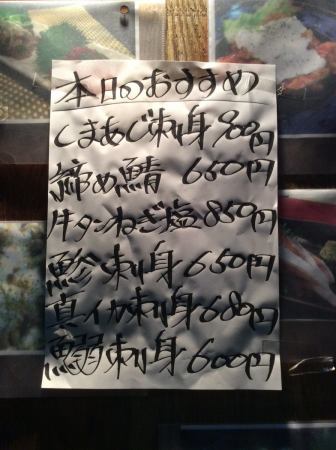 本日のおすすめ
くまあじ刺身900円
締め鯖 650円
牛タンねぎ塩850円
鯵刺身650円
真イカ刺身680円
鰯刺身600円